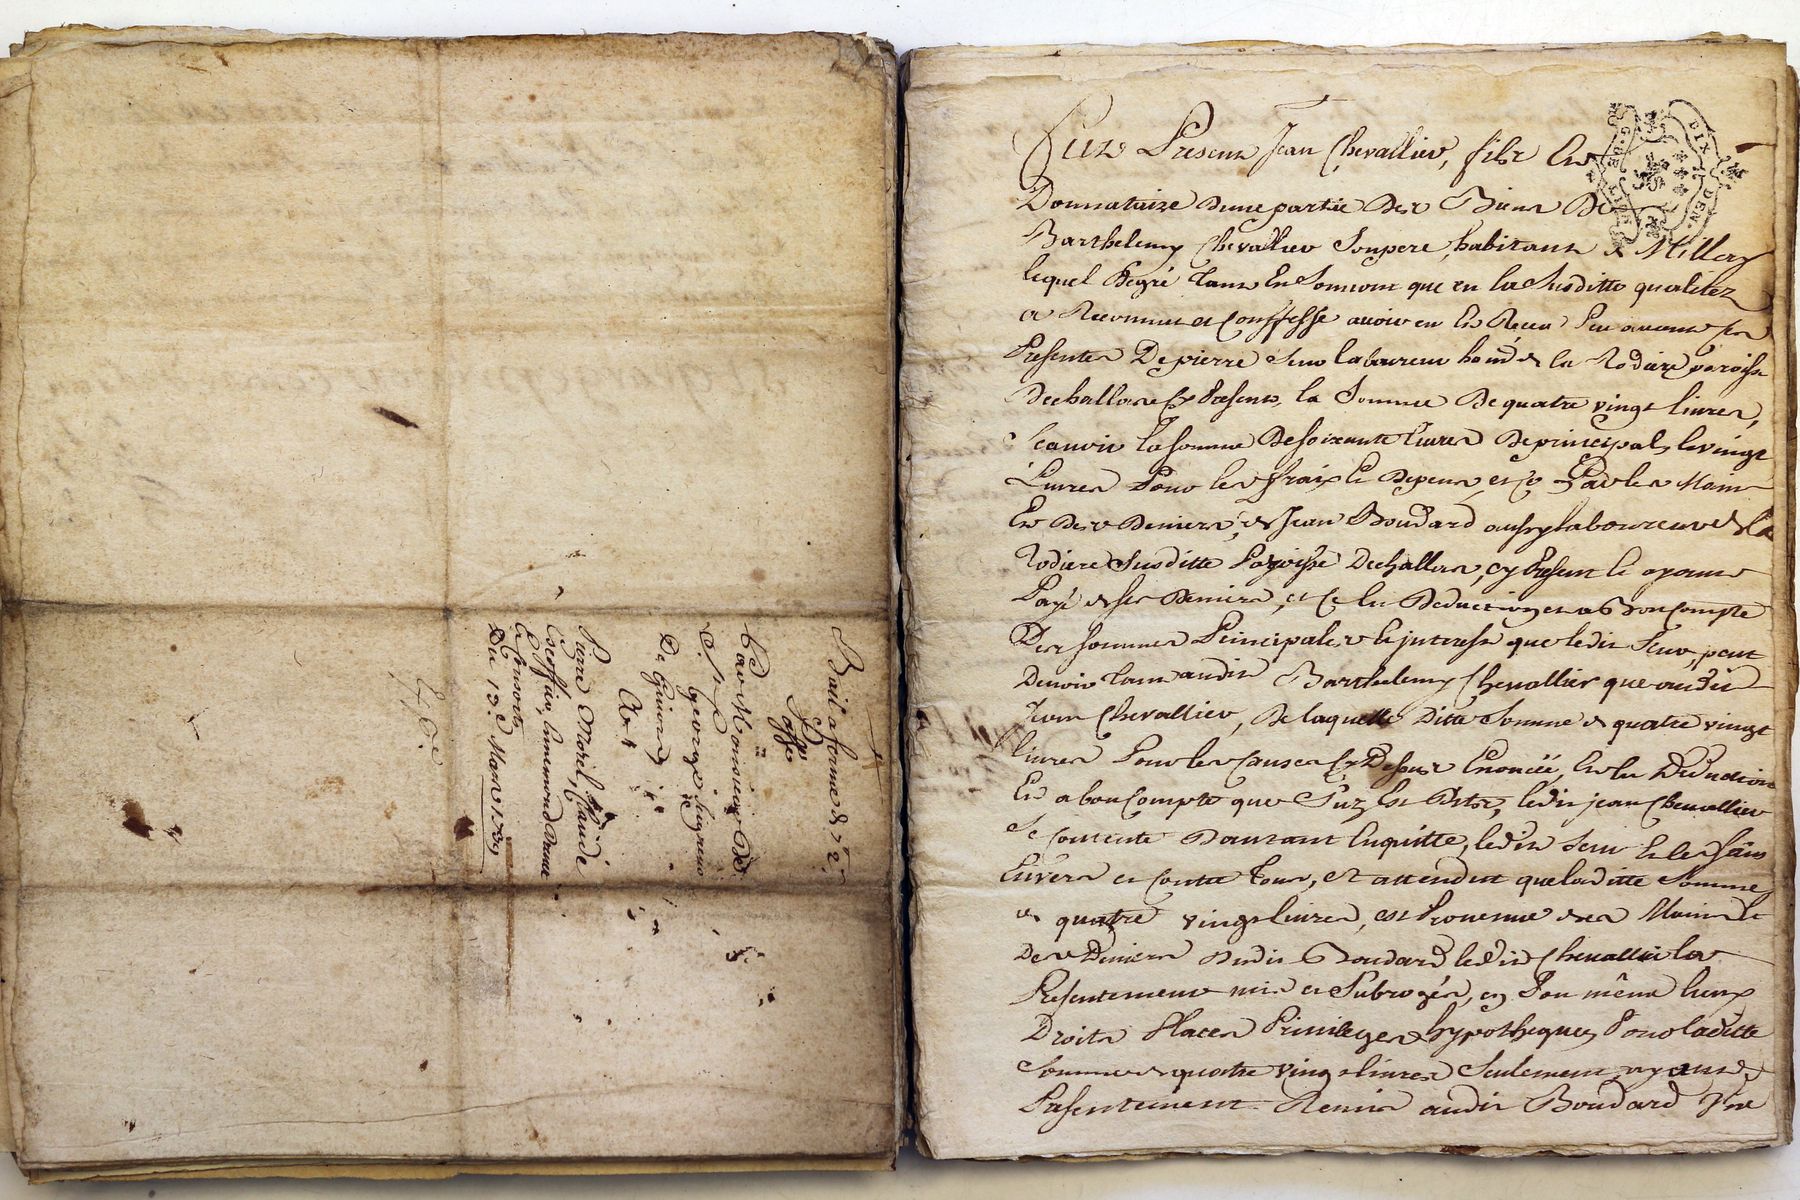 Bail a ferme de 72
pnt
Par Monsieur De
george Seigneur
De Grigord
A
Pierre Morel, Claude
Escoffier, Ennemond Dieme
& Consorts
Du 13e. Mars 1739
DIX DEN.
G. DE
Fuze Present Jean Chevallier, filz Et
Donnataire dune partie Des Biens De
Barthelemy Chevallier Son pere, habitant de Millery
lequel de gré tant En Son nom que en la Susditte qualitez
a Reconnu et Confessé avoir eu Et Receu peu avant ces
Presentes De pierre Seuv laboureur habitt de la Rodiere paroisse
De challans Cy Present, la Somme De quatre vingt livres,
Scavoir la somme De soixante livres De principal, Et vingt
Livres Pour les fraix Et Depens, et ce Par les Mains
Et Des Deniers, de Jean Boudard aussy laboureur de la
Rodiere Susditte Paroisse De challans, cy Present Et ayant
Payé de ses Deniers, et ce En Deduction et a Bon Compte
Des sommes Principales Et interest que ledit Seuv, peut
Devoir tant audit Barthelemy Chevallier que audit
Jean Chevallier, De laquelle Ditte Somme de quatre vingt
livres Pour les causes Cy Dessus Enoncée, Et En Deduction
Et a bon Compte que Sus Est Dite, ledit jean Chevallier
Se contente Dautant En quitte, ledit Seuv Et les siens
Envers et contre Tous, Et attendut que laditte Somme
de quatre vingt livres, est Provenue des Mains Et
Des Deniers Dudit Boudard ledit Chevallier la
Presentement mis et Subrogés, en Son même lieux
Droits Places Privileges & hypotheques Pour laditte
Somme de quatre vingt livres Seulement, ayant
Presentement Remis audit Boudard Une